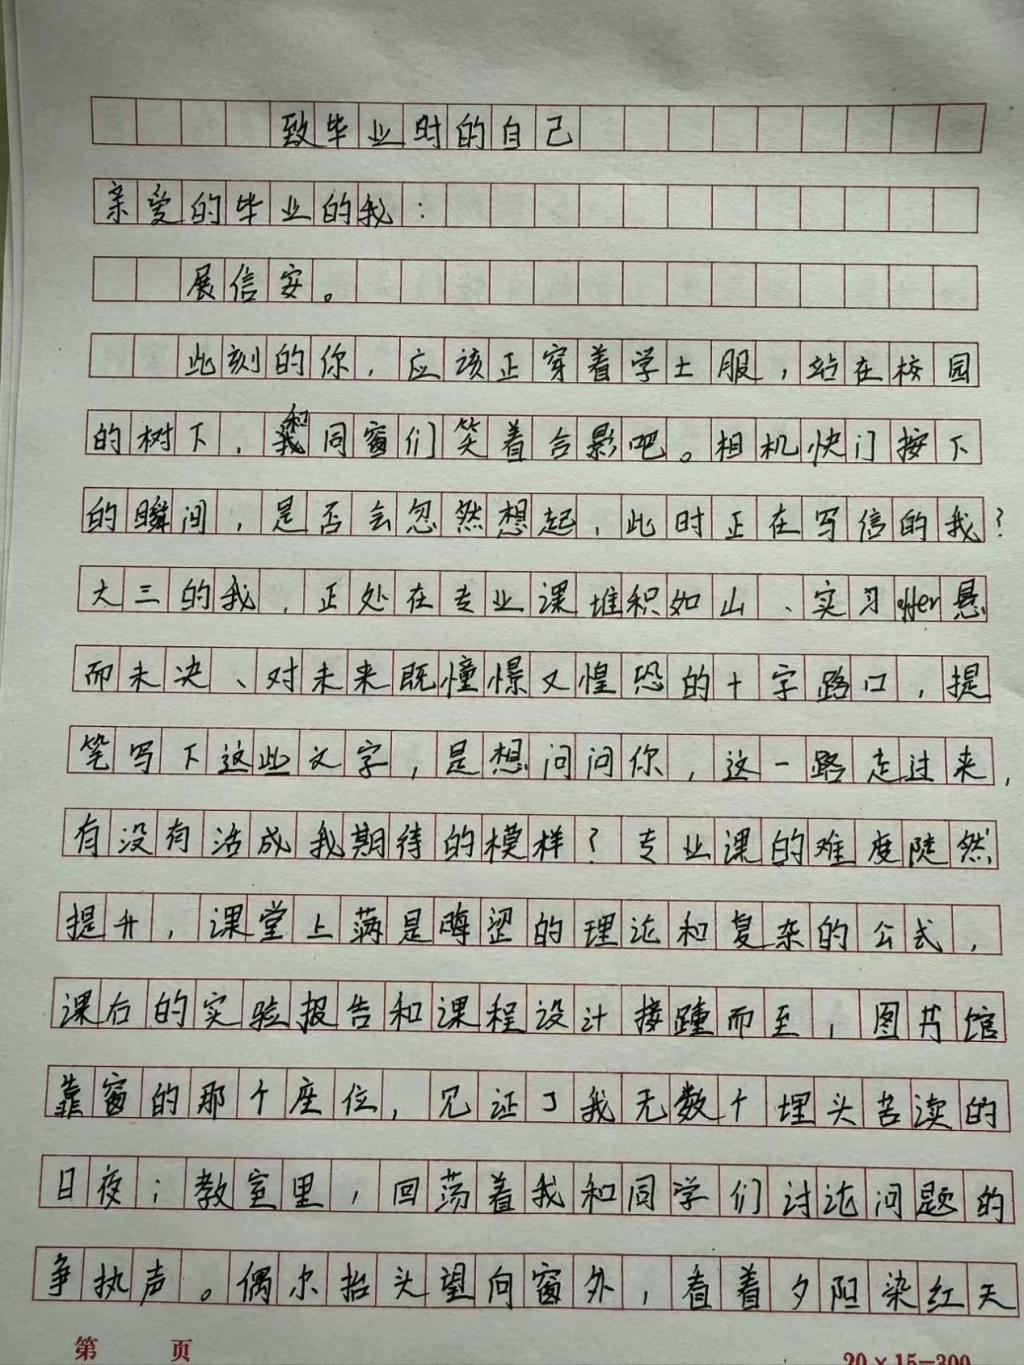 致毕业时的自己
亲爱的毕业的我：
展信安。
此刻的你，应该正穿着学士服，站在校园
的树下，和同窗们笑着合影吧。相机快门按下
的瞬间，是否会忽然想起，此时正在写信的我？
大三的我，正处在专业课堆积如山、实习offer悬
而未决、对未来既憧憬又惶恐的十字路口，提
笔写下这些文字，是想问问你，这一路走过来，
有没有活成我期待的模样？专业课的难度陡然
提升，课堂上满是晦涩的理论和复杂的公式，
课后的实验报告和课程设计接踵而至，图书馆
靠窗的那个座位，见证了我无数个埋头苦读的
日夜；教室里，回荡着我和同学们讨论问题的
争执声。偶尔抬头望向窗外，看着夕阳染红天
第 页
20×15=300